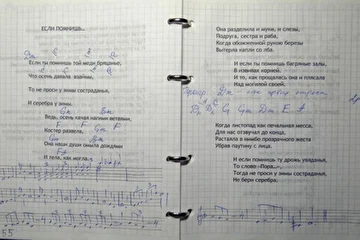 ЕСЛИ ПОМНИШЬ..
Dm C A D
Если ты помнишь той меди бряцанье,
Dm C A D
Что осень давала взаймы,
То не проси у зимы состраданья,
И серебра у зимы.
Gm Dm
Ведь, осень качая нагими ветвями,
Костер развела,
Gm Dm
Она наши души омыла дождями
И тела, как могла.
55
Она разделила и муки, и слезы,
Подруга, сестра и раба,
Когда обожженной рукою березы
Вытерла капли со лба.
И если ты помнишь багряные залы,
В извивах корней,
И то, как прощалась она и плясала
Над могилой своей.
Dm
Dm C Gm Dm E A
Когда листопад как печальная месса,
Для нас отзвучал до конца,
Растаяла в нимбе прозрачного жеста
Убрав паутину с лица.
И если помнишь ту дрожь увяданья,
То слово "Пора..",
Тогда не проси у зимы состраданья,
Не бери серебра.